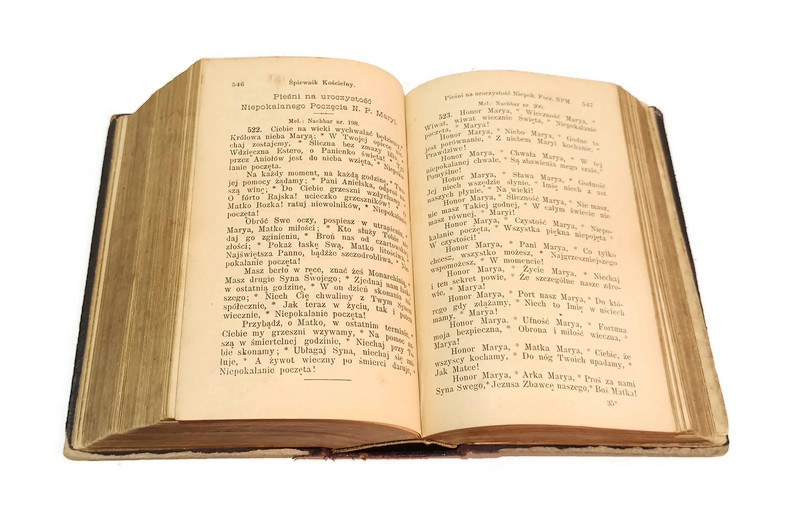 546 Śpiewnik Kościelny.
Pieśni na uroczystość
Niepokalanego Poczęcia N. P. Maryi.
Mel.: Nachbar nr. 198.
522. Ciebie na wieki wychwalać będziemy,
Królowa nieba Marya; * W Twojej opiece
chaj zostajemy, * Śliczna bez zmazy
Wdzięczna Estero, o Panienko święta!
przez Aniołów jest do nieba wzięta, * Niepoka-
lanie poczęta.
Na każdy moment, na każdą godzinę * Twojej
jej pomocy żądamy; * Pani Anielska, odproś
szą winę; * Do Ciebie grzeszni wzdychamy,
O fórto Rajska! ucieczko grzeszników! *
Matko Boża! ratuj niewolników, * Niepokalanie
poczęta!
Obróć Swe oczy, pospiesz w utrapieniu,
Marya, Matko miłości; * Kto służy Tobie
daj go zginieniu, * Broń nas od czartowskiej
złości; * Pokaż łaskę Swą, Matko litościwa,
Najświętsza Panno, bądźże szczodrobliwa, *
pokalanie poczęta!
Masz berło w ręce, znać żeś Monarchini,
Masz drugie Syna Swojego; * Zjednaj nam
w ostatnią godzinę, * W on dzień skonania
szego; * Niech Cię chwalimy z Twym Synem
społecznie, * Jak teraz w życiu, tak i
wiecznie, * Niepokalanie poczęta!
Przybądź, o Matko, w ostatnim terminie, *
Ciebie my grzeszni wzywamy, * Na pomoc
szą w śmiertelnej godzinie, * Niechaj przy To-
bie skonamy; * Ubłagaj Syna, niechaj się
tuje, * A żywot wieczny po śmierci daruje,
Niepokalanie poczęta!
Pieśni na uroczystość Niepok. Pocz. NPM. 547
Mel.: Nachbar nr. 200.
523. Honor Marya, * Wieczność Marya, *
Wiwat, wiwat wiecznie Święta, * Niepokalanie
poczęta, * Marya!
Honor Marya, * Niebo Marya, * Godne to
jest porównanie, * Z niebem Maryi kochanie, *
Prawdziwe!
Honor Marya, * Chwała Marya, * W tej
niepokalanej chwale, * Są zbawienia mego szale, *
Pomyślne!
Honor Marya, * Sława Marya, * Godność
Jej niech wszędzie słynie, * Imię niech z ust
naszych płynie, * Na wieki!
Honor Marya, * Śliczność Marya, * Nie masz,
nie masz Takiej godnej, * W całym świecie nie
masz równej, * Maryi!
Honor Marya, * Czystość Marya, * Niepo-
kalanie poczęta, * Wszystka piękna niepojęta *
W czystości!
Honor Marya, * Pani Marya, * Co tylko
chcesz, wszystko możesz, * Najgrzeszniejszego
wspomożesz, * W momencie!
Honor Marya, * Życie Marya, * Niechaj
i ten sekret powie, * Że szczególne nasze zdro-
wie, * Marya!
Honor Marya, * Port nasz Marya, * Do któ-
rego gdy zdążamy, * Niech to Imię w uściech
mamy, * Marya!
Honor Marya, * Ufność Marya, * Fortuna
moja bezpieczna, * Obrona i miłość wieczna, *
Marya!
Honor Marya, * Matka Marya, * Ciebie, że
wszyscy kochamy, * Do nóg Twoich upadamy, *
Jak Matce!
Honor Marya, * Arka Marya, * Proś za nami
Syna Swego, * Jezusa Zbawcę naszego, * Boś Matka!
35*